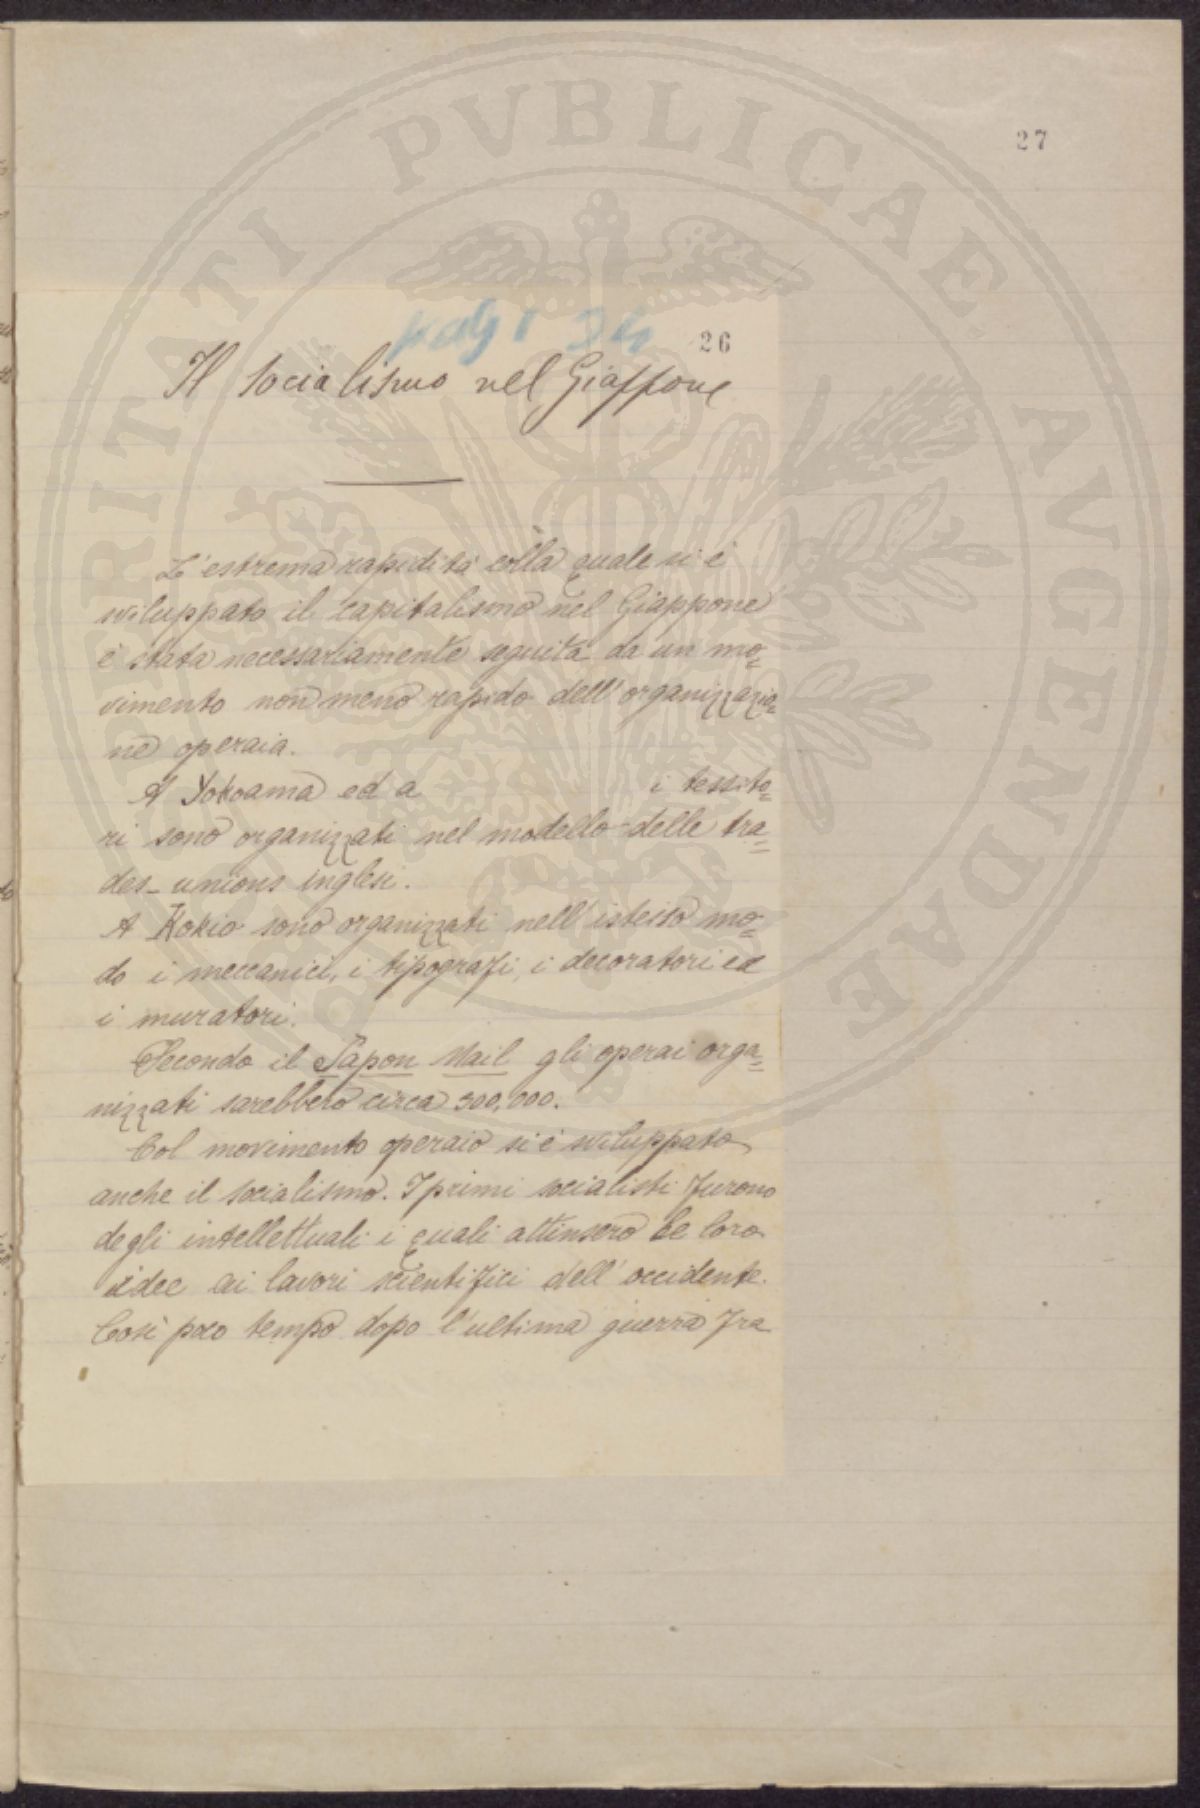 27
26
Il socialismo nel Giappone
L'estrema rapidità colla quale si è
sviluppato il capitalismo nel Giappone
è stata necessariamente seguita da un mo=
vimento non meno rapido dell'organizzazio=
ne operaia.
A Yokoama ed a i tessito=
ri sono organizzati nel modello delle tra=
des-unions inglesi.
A Kokio sono organizzati nell'istesso mo=
do i meccanici, i tipografi, i decoratori ed
i muratori.
Secondo il Japon Mail gli operai orga=
nizzati sarebbero circa 300,000.
Col movimento operaio si è sviluppato
anche il socialismo. I primi socialisti furono
degli intellettuali i quali attinsero le loro
idee ai lavori scientifici dell'occidente.
Così poco tempo dopo l'ultima guerra fra
PROSPERITATI PVBLICAE AVGENDAE